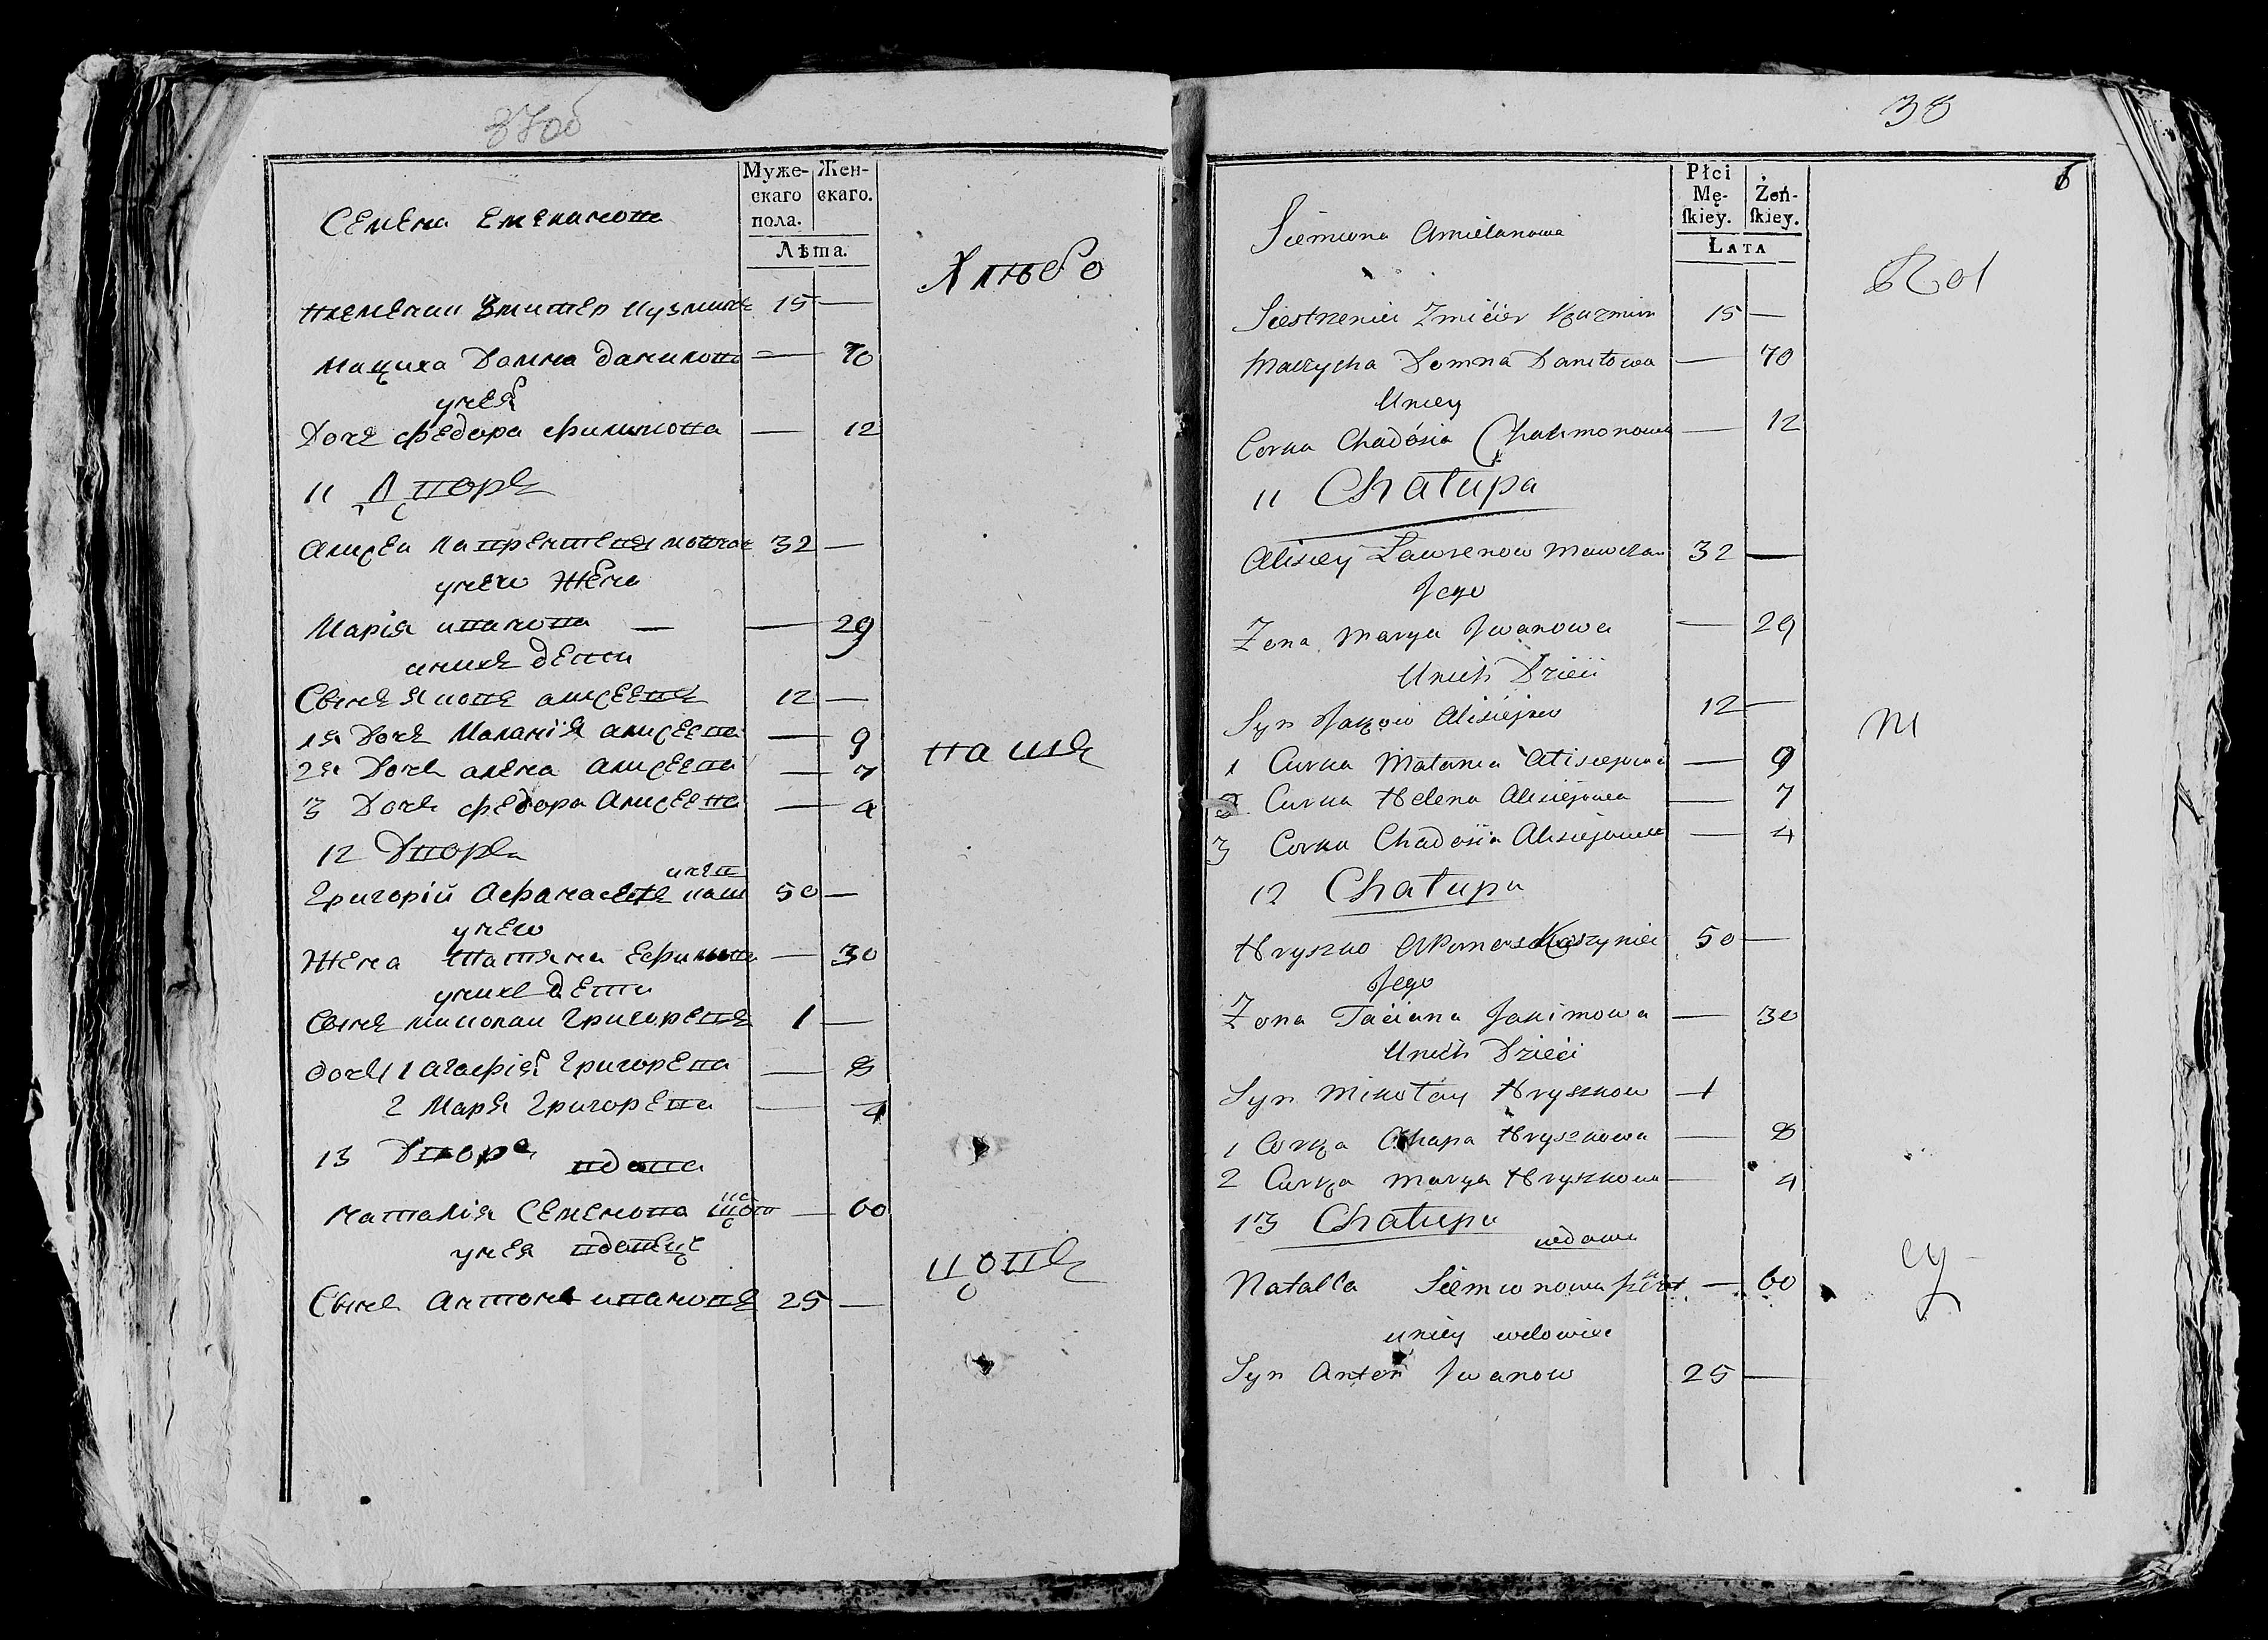 37об
Муже-
скаго
пола.
Жен-
скаго.
Лѣта.
Семена Емелянова
Хлѣбо
племеник Змитер Кузмичъ 15 —
Мачиха Домна данилова — 70
унея
Дочъ федора филимонова — 12
11 Дворъ
Алисеи Лаврентевъ 32 —
унево Жена
Марія иванова — — 29
уних дети
Сынъ Яковъ алисеевъ 12 —
1я Дочъ Маланія алисеева — 9
2я Дочъ алена алисеева — 7
3 Дочъ федора Алисеева — 4
пашц
12 Дворъ
Григорій Афанасевъ 50 —
унево
Жена татяна Ефимова — 30
уних дети
Сынъ николаи Григоревъ 1 —
дочъ 1 агафія Григорева — 8
2 Маря Григорева — 4
13 Дворъ
вдова
наталія Семенова — 60
унея вдовиц
Сынъ Антонъ ивановъ 25 —
цовъ
38
6
Płci
Mę-
skiey.
Żeń-
skiey.
Lata
Siemiona Amielanowa
Siestrzeniec Zmicier Kuzmin 15 —
Maczycha Domna Daniłowa — 70
Uniey
Corka Chadósia Chalimonowa — 12
11 Chałupa
Alisiey Lawrenow 32 —
Jego
Zona Marya Jwanowa — 29
Unich Dzieci
Syn Jakow Alisiejew 12 —
M
1 Curka Małania Alisiejowa — 9
2 Curka Helena Alisiejowa — 7
3 Corka Chadosia Alisiejowa — 4
12 Chałupa
Hryszko 50 —
Jego
Zona Taciana Jakimowa — 30
Unich Dzieci
Syn Mikołay Hryszkow — 1
1 Corka Ahapa Hryszkowa — 8
2 Curka Marya Hryszkowa — 4
13 Chałupa
wdowa
Natalla Siemionowa — 60
uniey wdowiec
Syn Anton Jwanow 25 —